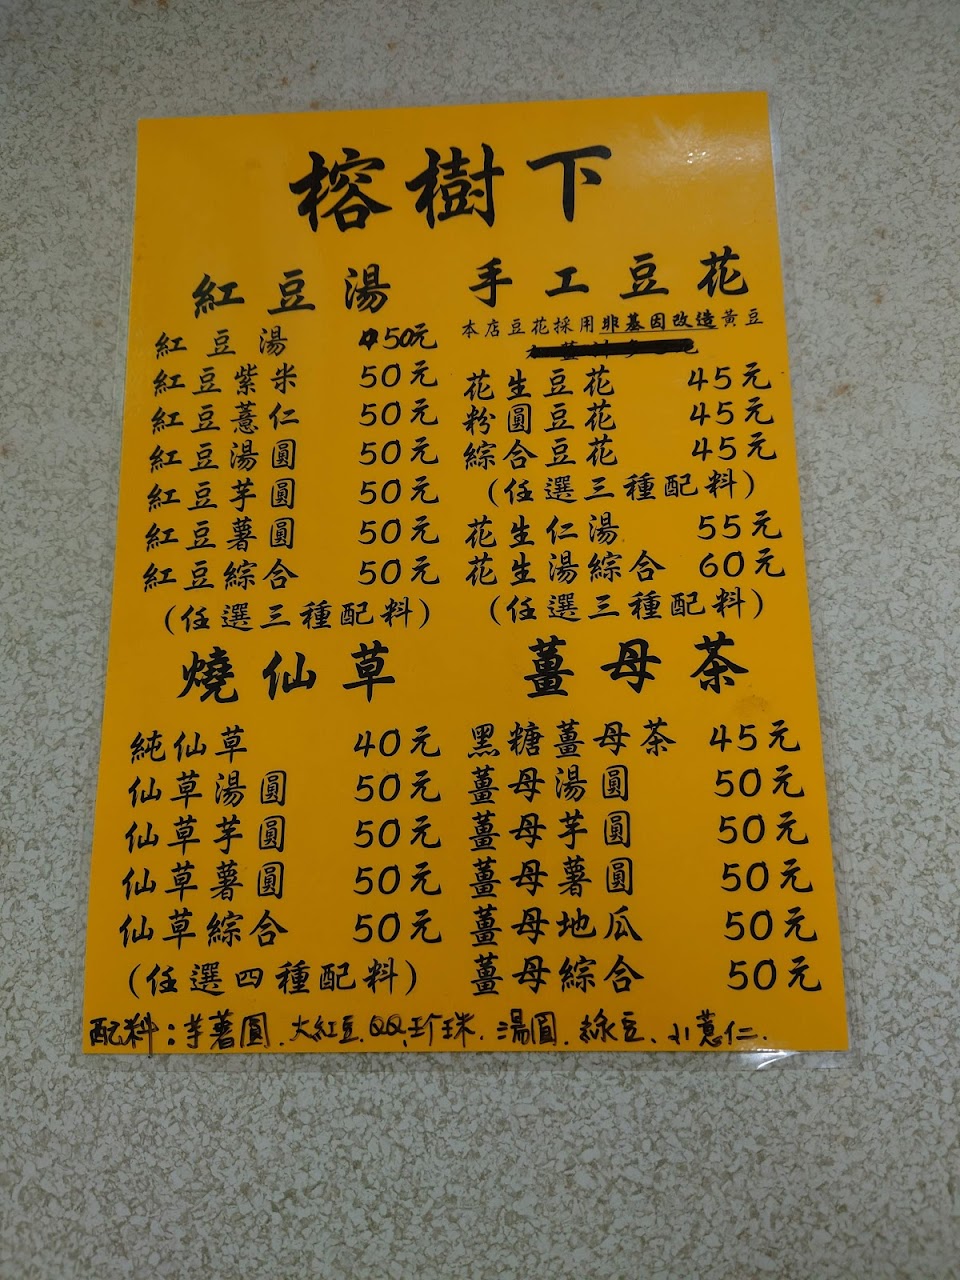 榕樹下
紅豆湯
紅豆湯 50元
紅豆紫米 50元
紅豆薏仁 50元
紅豆湯圓 50元
紅豆芋圓 50元
紅豆薯圓 50元
紅豆綜合 50元
(任選三種配料)
手工豆花
本店豆花採用非基因改造黃豆
花生豆花 45元
粉圓豆花 45元
綜合豆花 45元
(任選三種配料)
花生仁湯 55元
花生湯綜合 60元
(任選三種配料)
燒仙草
純仙草 40元
仙草湯圓 50元
仙草芋圓 50元
仙草薯圓 50元
仙草綜合 50元
(任選四種配料)
薑母茶
黑糖薑母茶 45元
薑母湯圓 50元
薑母芋圓 50元
薑母薯圓 50元
薑母地瓜 50元
薑母綜合 50元
配料：芋薯圓、大紅豆、QQ珍珠、湯圓、綠豆、小薏仁.